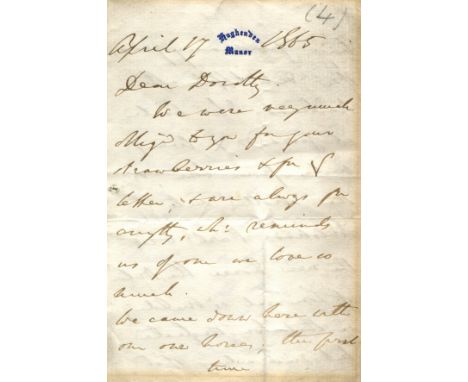 (4)
Hughenden
Manor
April 17 1865
Dear Dorothy
We were very much
oblig'd to you for your
strawberries & for yr
letter, & are always for
anyth, wh: reminds
us of one we love so
much.
We came down here with
our own horses, the first
time